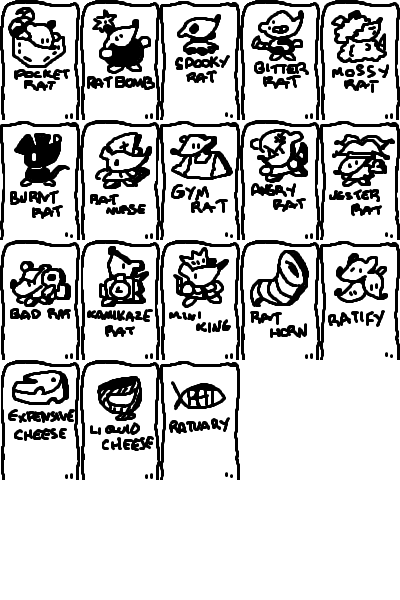 POCKET
RAT
RAT BOMB
SPOOKY
RAT
BITTER
RAT
MOSSY
RAT
BURNT
RAT
RAT
NURSE
GYM
RAT
ANGRY
RAT
JESTER
RAT
BAD RAT
KAMIKAZE
RAT
MINI
KING
RAT
HORN
RATIFY
EXPENSIVE
CHEESE
LIQUID
CHEESE
RAT
RATUARY